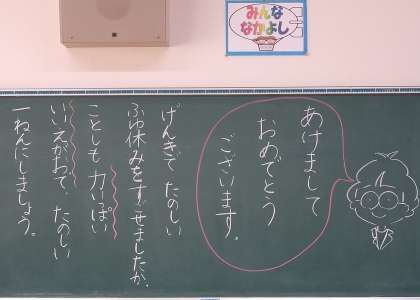 みんな
なかよし
あけまして
おめでとう
ございます。
げんきで たのしい
ふゆ休みをすごせましたか。
ことしも 力いっぱい
いいえがおで、たのしい
一ねんにしましょう。